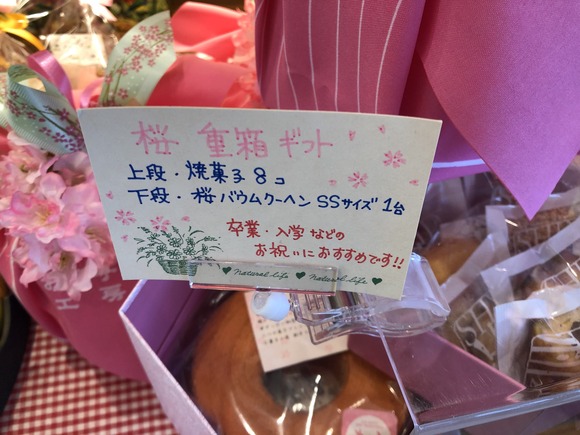 桜 重箱ギフト
上段・焼菓子8コ
下段・桜バウムクーヘン SSサイズ1台
卒業・入学などの
お祝いにおすすめです!!
natural life natural life